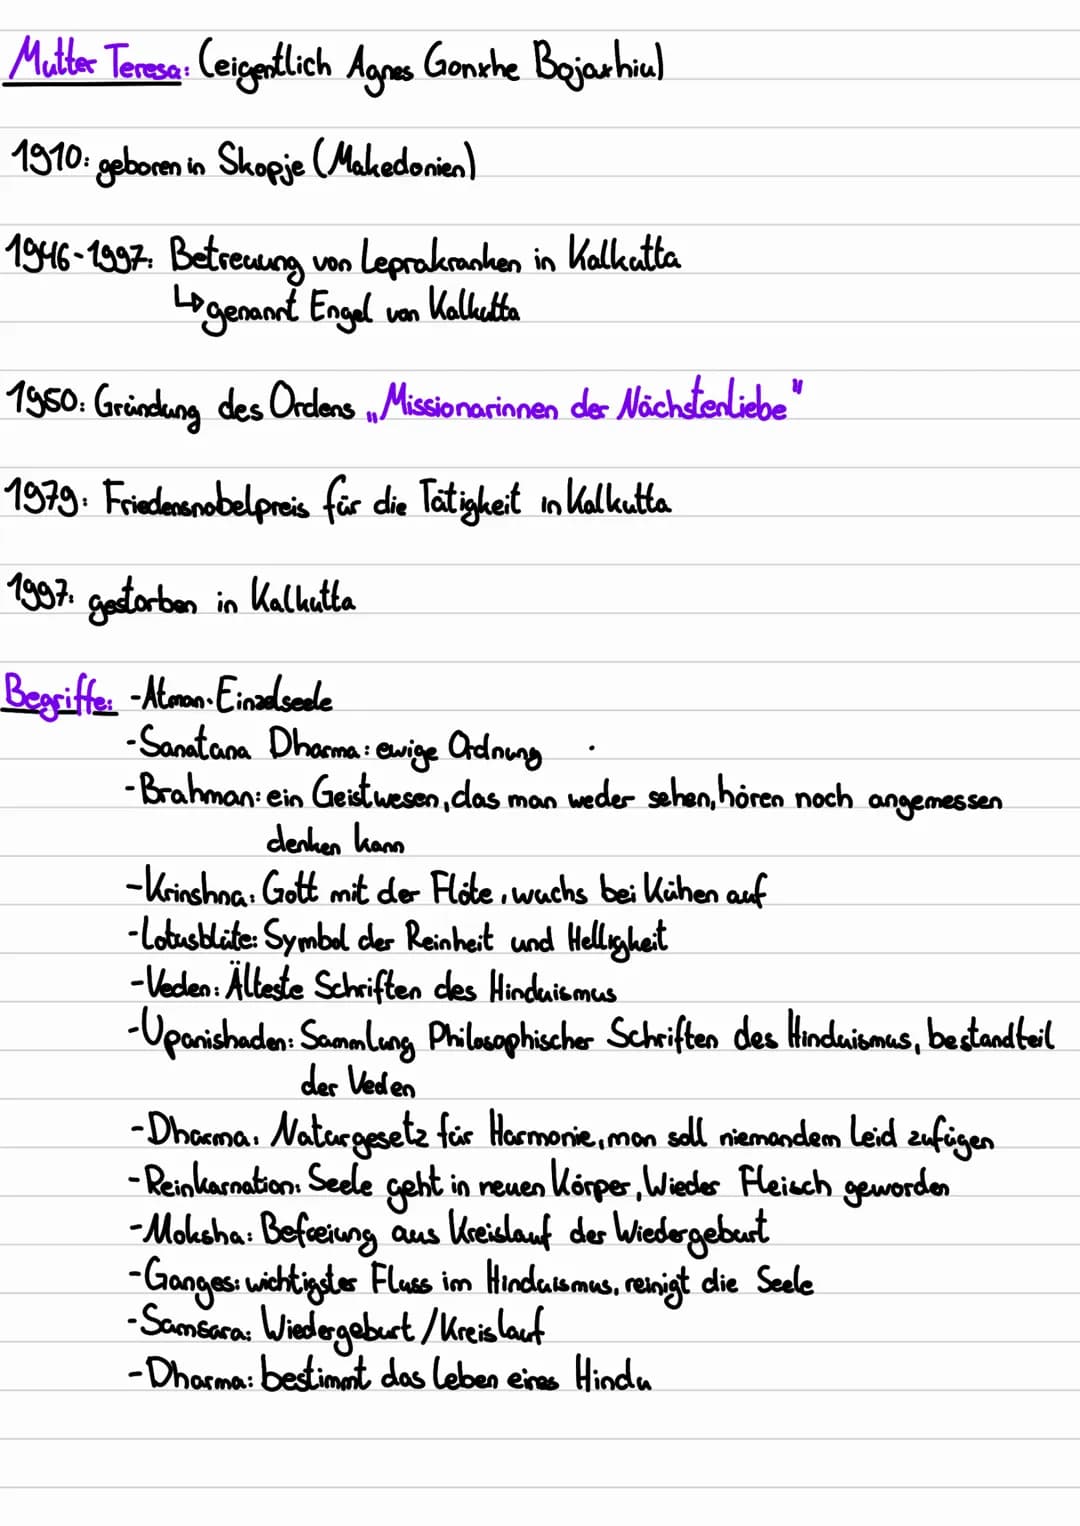 Mutter Teresa: (eigentlich Agnes Gonxhe Bojaxhiu)
1910: geboren in Skopje (Makedonien)
1946-1997: Betreuung von Leprakranken in Kalkutta
↳ genannt Engel von Kalkutta
1950: Gründung des Ordens „Missionarinnen der Nächstenliebe"
1979: Friedensnobelpreis für die Tätigkeit in Kalkutta
1997: gestorben in Kalkutta
Begriffe: -Atman: Einzelseele
-Sanatana Dharma: ewige Ordnung
-Brahman: ein Geistwesen, das man weder sehen, hören noch angemessen
denken kann
-Krinshna: Gott mit der Flöte, wuchs bei Kühen auf
-Lotusblüte: Symbol der Reinheit und Helligkeit
-Veden: Älteste Schriften des Hinduismus
-Upanishaden: Sammlung Philosophischer Schriften des Hinduismus, bestandteil
der Veden
-Dharma: Naturgesetz für Harmonie, man soll niemandem Leid zufügen
-Reinkarnation: Seele geht in neuen Körper, Wieder Fleisch geworden
-Moksha: Befreiung aus Kreislauf der Wiedergeburt
-Ganges: wichtigster Fluss im Hinduismus, reinigt die Seele
-Samsara: Wiedergeburt / Kreislauf
-Dharma: bestimmt das Leben eines Hindu